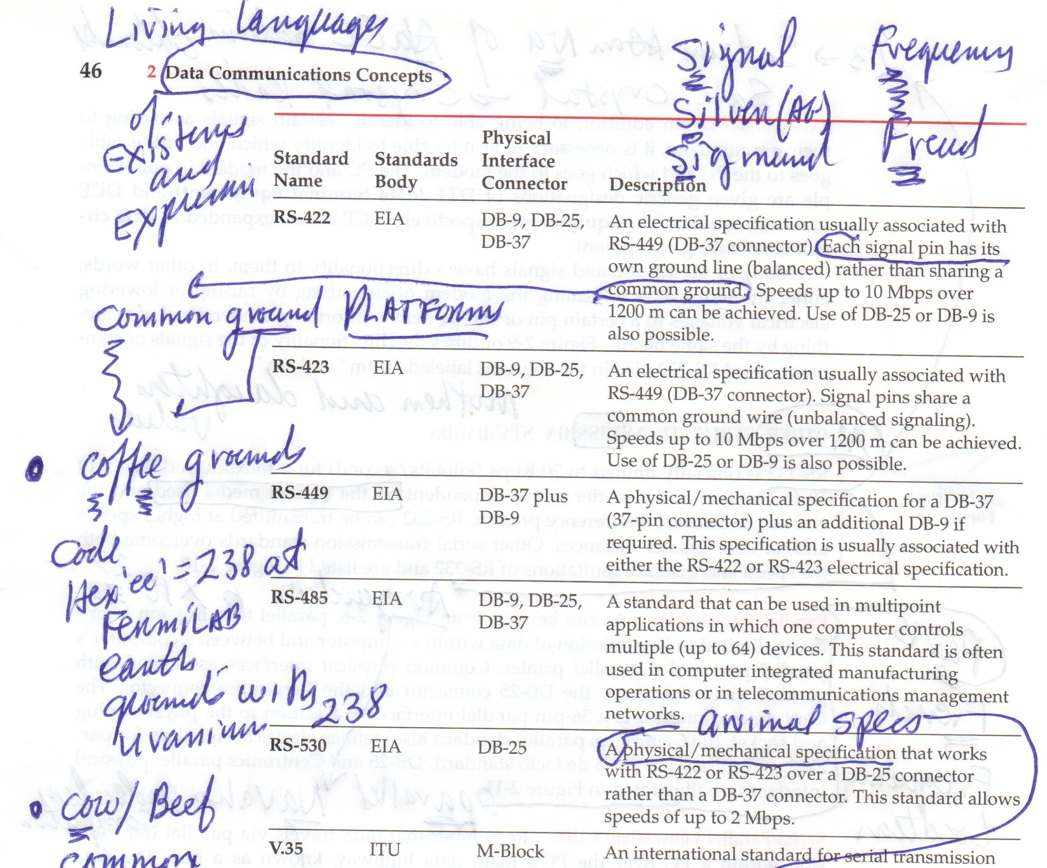 Living languages
46 2 Data Communications Concepts
Signal Frequency
Silver (Ag) Freud
Sigmund
Exist
and
Standard Name Standards Body Physical Interface Connector Description
RS-422 EIA DB-9, DB-25, DB-37
An electrical specification usually associated with
RS-449 (DB-37 connector). Each signal pin has its
own ground line (balanced) rather than sharing a
common ground. Speeds up to 10 Mbps over
1200 m can be achieved. Use of DB-25 or DB-9 is
also possible.
Common ground PLATForms
RS-423 EIA DB-9, DB-25, DB-37
An electrical specification usually associated with
RS-449 (DB-37 connector). Signal pins share a
common ground wire (unbalanced signaling).
Speeds up to 10 Mbps over 1200 m can be achieved.
Use of DB-25 or DB-9 is also possible.
coffee grounds
RS-449 EIA DB-37 plus DB-9
A physical/mechanical specification for a DB-37
(37-pin connector) plus an additional DB-9 if
required. This specification is usually associated with
either the RS-422 or RS-423 electrical specification.
Code
Hex 'ee' = 238 at
FermiLAB
earth
ground
uranium 238
RS-485 EIA DB-9, DB-25, DB-37
A standard that can be used in multipoint
applications in which one computer controls
multiple (up to 64) devices. This standard is often
used in computer integrated manufacturing
operations or in telecommunications management
networks.
animal specs
RS-530 EIA DB-25
A physical/mechanical specification that works
with RS-422 or RS-423 over a DB-25 connector
rather than a DB-37 connector. This standard allows
speeds of up to 2 Mbps.
cow/Beef
common
V.35 ITU M-Block
An international standard for serial transmission